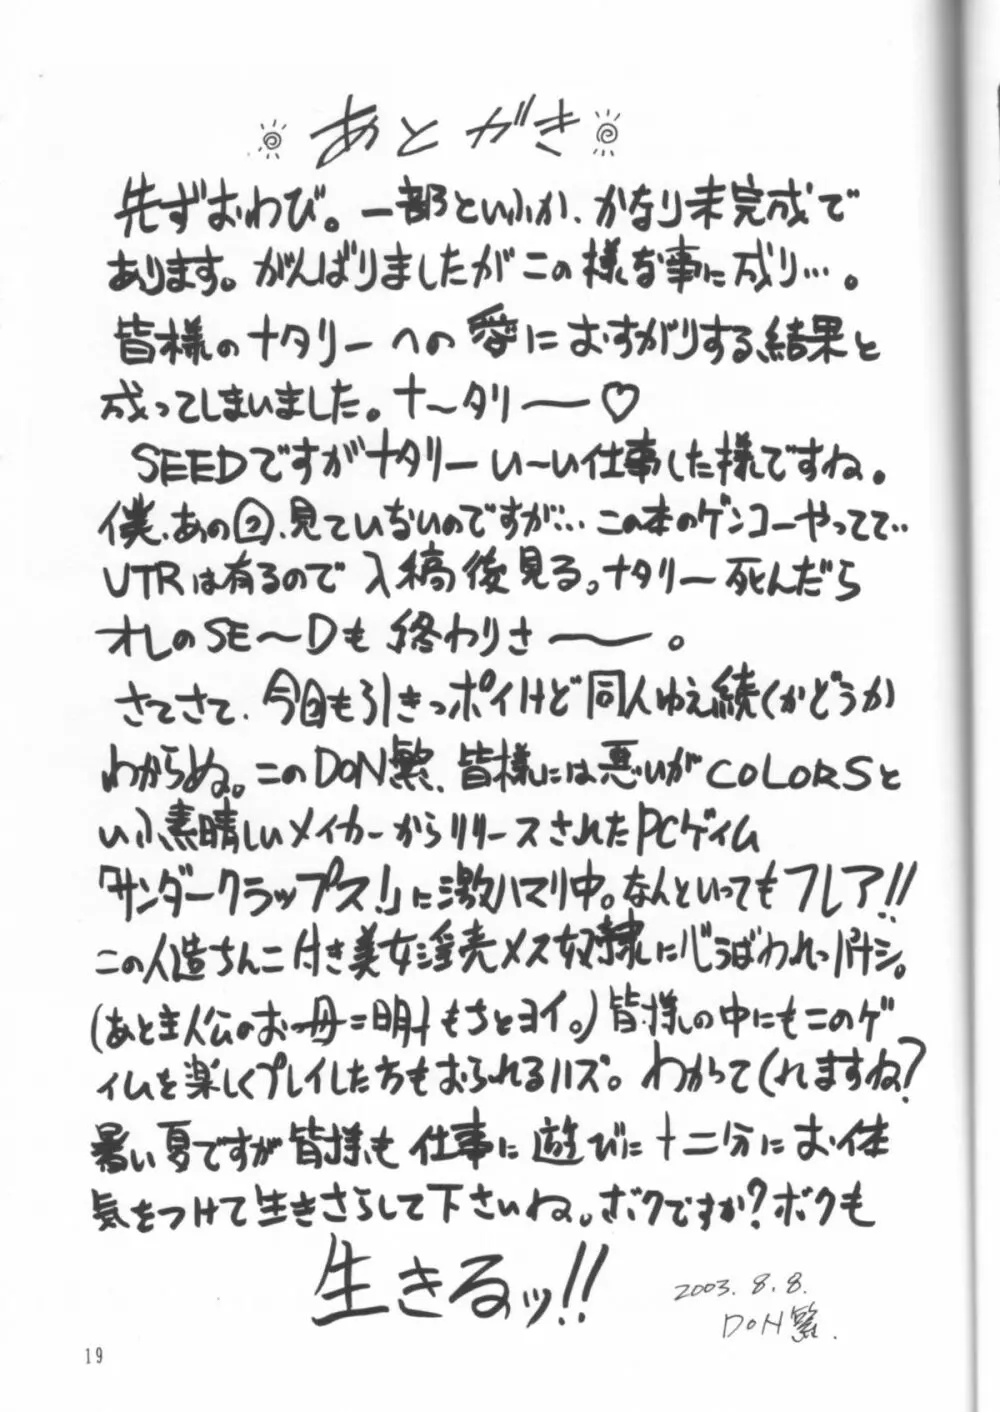 あとがき
先ずおわび。一部といふか、かなり未完成で
あります。がんばりましたがこの様な事に成り…。
皆様のナタリーへの愛におすがりする結果と
成ってしまいました。ナ〜タリ〜♡
SEEDですがナタリーい〜い仕事した様ですね。
僕、あの回、見ていないのですが… この本のゲンコーやってて‥
VTRは有るので入稿後見る。ナタリー死んだら
オレのSE〜Dも終わりさ〜。
さてさて、今回も引きっポイけど同人ゆえ続くかどうか
わからぬ。このDON繁、皆様には悪いがCOLORSと
いふ素晴しいメイカーからリリースされたPCゲイム
「サンダークラップス!」に激ハマリ中。なんといってもフレア!!
この人造ちんこ付き美女淫売メス奴隷に心うばわれっパナシ。
(あと主人公のお母ニ明けもちとヨイ。)皆様の中にもこのゲ
イムを楽しくプレイした方もおられるハズ。わかってくれますね?
暑い夏ですが皆様も仕事に遊びに十二分にお体
気をつけて生きさらして下さいね。ボクですか?ボクも
生きるッ!!
2003.8.8.
DON繁.
19